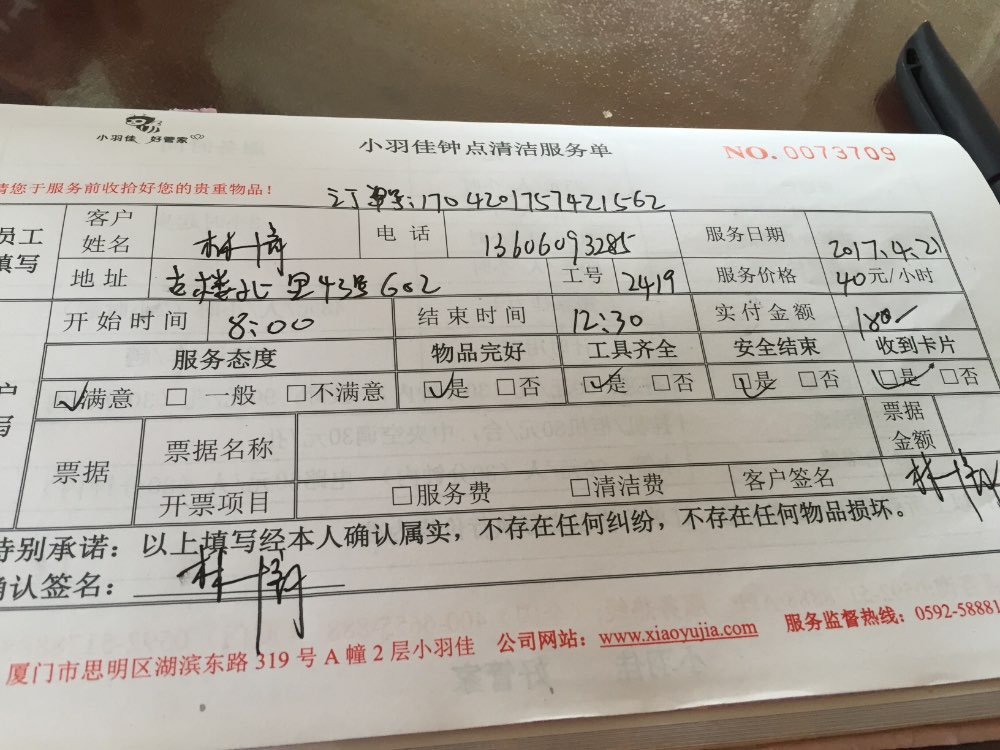 小羽佳 好管家
小羽佳钟点清洁服务单
NO. 0073709
请您于服务前收拾好您的贵重物品！
订单号：1704201757421562
员工填写
客户姓名 林 电话 13606093285 服务日期 2017.4.21
地址 古楼北里43号602 工号 2419 服务价格 40元/小时
开始时间 8:00 结束时间 12:30 实付金额 180
服务态度 物品完好 工具齐全 安全结束 收到卡片
☑满意 □一般 □不满意 ☑是 □否 ☑是 □否 ☑是 □否 ☑是 □否
票据 票据名称 票据金额
开票项目 □服务费 □清洁费 客户签名 林
特别承诺：以上填写经本人确认属实，不存在任何纠纷，不存在任何物品损坏。
确认签名：林
厦门市思明区湖滨东路 319 号 A 幢 2 层小羽佳 公司网站：www.xiaoyujia.com 服务监督热线：0592-58881